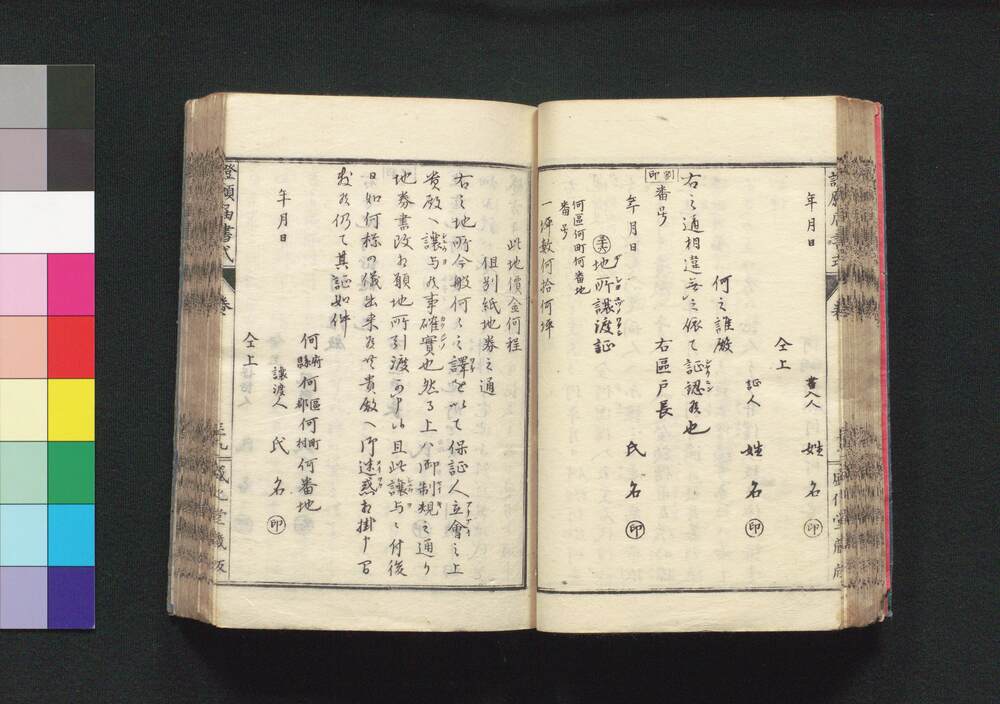 年月日
書入人 姓名 ㊞
仝上
証人 姓名 ㊞
何之誰殿
右之通相違無之依て証認候也
右區戸長
割印 番号
年月日 氏名 ㊞
地所讓渡証
何區何町何番地
番号
一坪数何拾何坪
此地價金何程
但別紙地券之通
右之地所今般何々之譯を以て保証人立會之上
貴殿へ讓与候事確實也然る上ハ御制規之通り
地券書改相願地所引渡可申候且此讓与ニ付後
日如何様の儀出来候共貴殿へ御迷惑相掛申間
敷候仍て其証如件
年月日
何府縣何區郡何町村何番地
讓渡人 氏名 ㊞
仝上
證願届書式
卷
盛化堂藏版